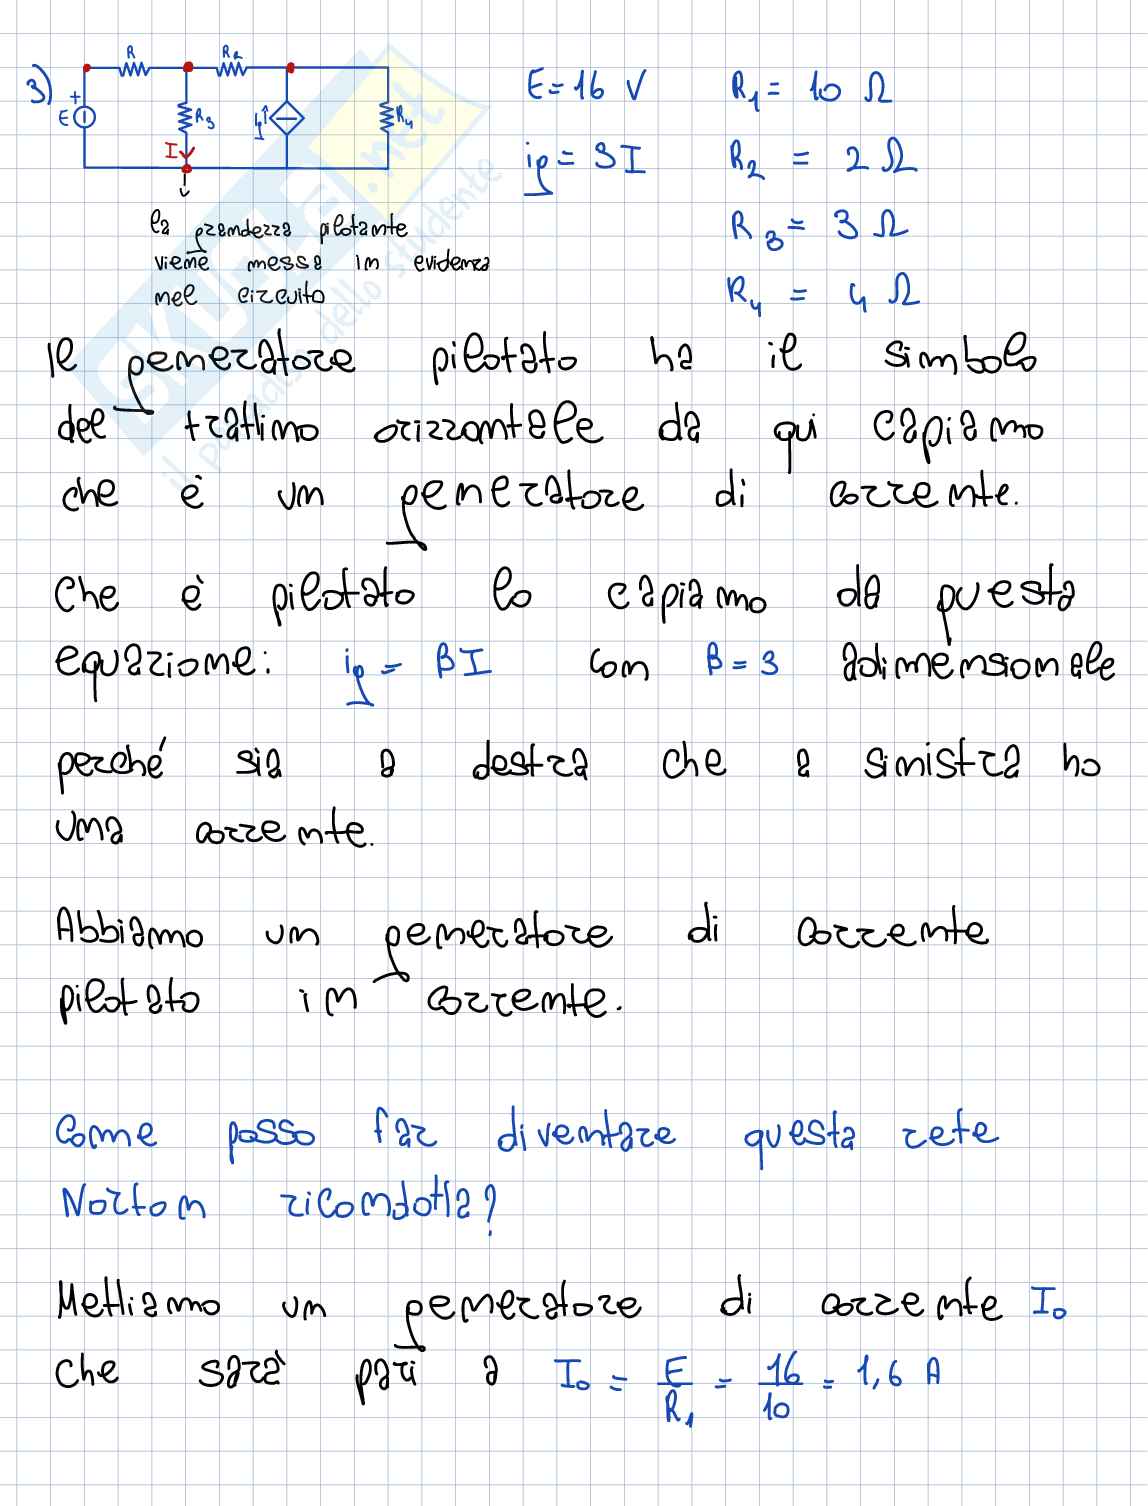 3)
R
R2
+
E
R3
ig
R4
I
E = 16 V
R1 = 10 Ω
ig = 3I
R2 = 2 Ω
R3 = 3 Ω
R4 = 4 Ω
la grandezza pilotante
viene messa in evidenza
nel circuito
Il generatore pilotato ha il simbolo
del trattino orizzontale da qui capiamo
che è un generatore di corrente.
Che è pilotato lo capiamo da questa
equazione: ig = βI con β = 3 adimensionale
perché sia a destra che a sinistra ho
una corrente.
Abbiamo un generatore di corrente
pilotato in corrente.
Come posso far diventare questa rete
Norton ricondotta?
Mettiamo un generatore di corrente I0
che sarà pari a I0 = E/R1 = 16/10 = 1,6 A
SKUOLA.net
il portale dello studente